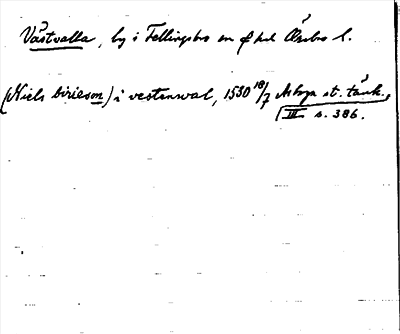 Västvalla, by i Fellingsbro sn o hd Örebro l.
(Niels birieson) i vestanwal, 1550 18/7 Arboga st. tänk.
III s. 386.